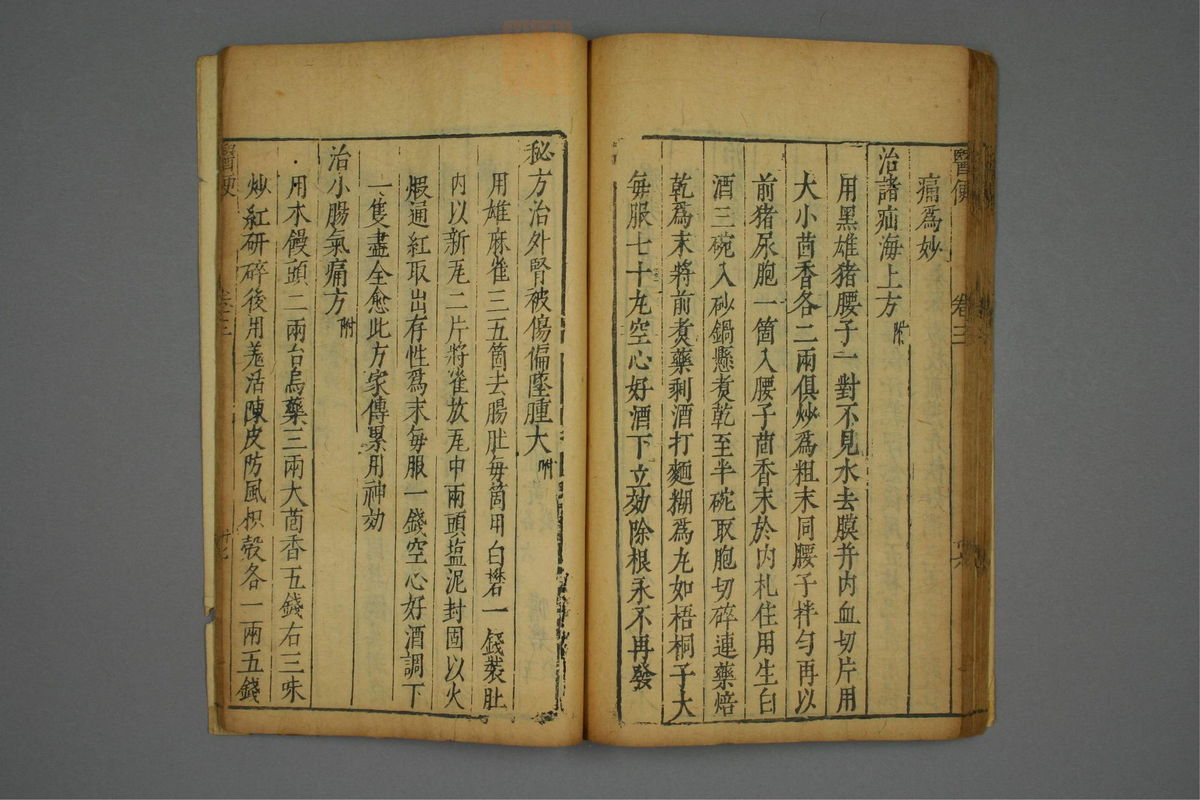 醫便
卷三
痛爲妙
治諸疝海上方 附
用黑雄猪腰子一對不見水去膜并内血切片用
大小茴香各二兩俱炒爲粗末同腰子拌勻再以
前猪尿胞一箇入腰子茴香末於内札住用生白
酒三碗入砂鍋懸煑乾至半碗取胞切碎連藥焙
乾爲末將前煑藥剩酒打麵糊爲丸如梧桐子大
每服七十丸空心好酒下立効除根永不再發
秘方治外腎被傷偏墜腫大 附
用雄麻雀三五箇去腸肚每箇用白礬一錢裝肚
内以新瓦二片將雀放瓦中兩頭塩泥封固以火
煆通紅取出存性爲末每服一錢空心好酒調下
一隻盡全愈此方家傳累用神効
治小腸氣痛方 附
用木饅頭二兩台烏藥三兩大茴香五錢右三味
炒紅研碎後用羗活陳皮防風枳殼各一兩五錢
醫便
卷之三
廿七